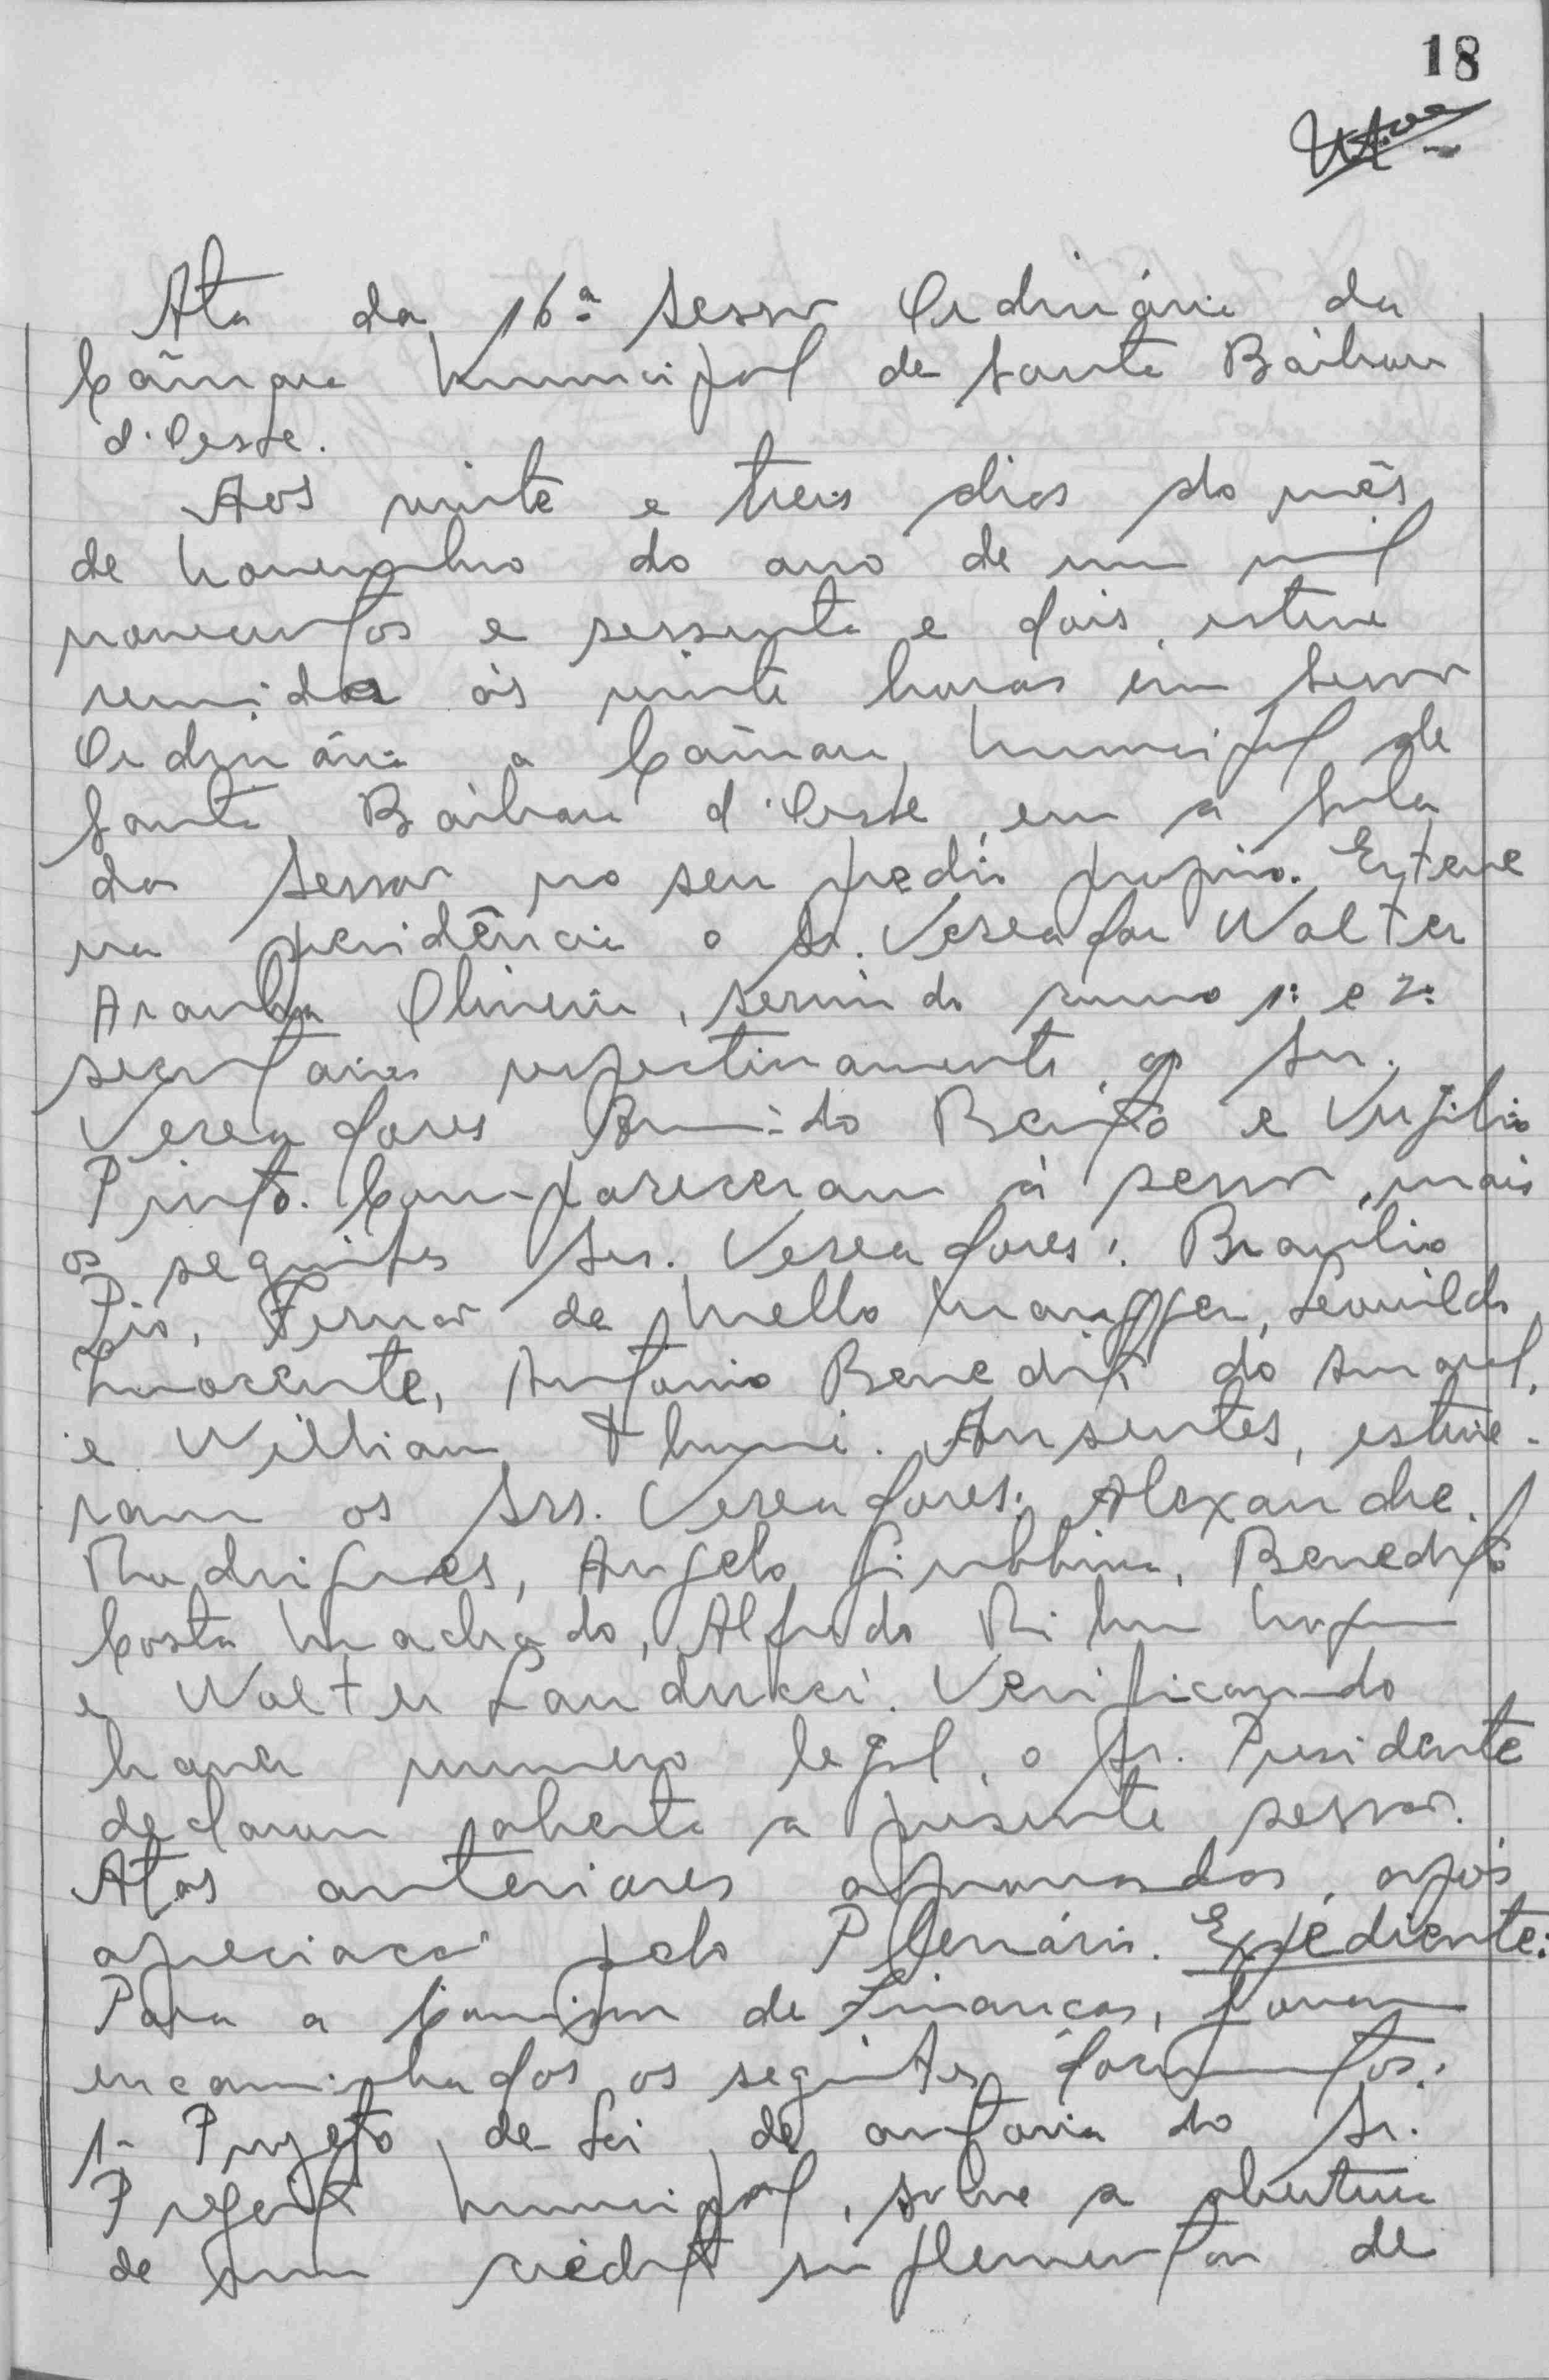 18
Ata da 16ª Sessão Ordinária da
Câmara Municipal de Santa Bárbara
d'Oeste.
Aos vinte e treis dias do mês
de novembro do ano de um mil
novecentos e sessenta e dois, esteve
reunida às vinte horas em Sessão
Ordinária a Câmara Municipal de
Santa Bárbara d'Oeste, em a Sala
das Sessões no seu predio proprio. Esteve
na presidência o Sr. Vereador Walter
Aranha Oliveira, servindo como 1º e 2º
secretarios respectivamente, os Srs.
Vereadores Benito e Virgilio
Pinto. Compareceram à sessão, mais
os seguintes Srs. Vereadores: Braulio
Pio, Fernão de Mello, Leonildo
Inocente, Antonio Benedito do Amaral,
e Willian. Ausentes, estive-
ram os Srs. Vereadores: Alexandre
Rodrigues, Angelo Giubbina, Benedito
Costa Machado, Alfredo
e Walter Landucci. Verificando
haver numero legal, o Sr. Presidente
declarou aberta a presente sessão.
Atas anteriores aprovadas, após
apreciação pelo Plenário. Expediente:
Para a Comissão de Finanças, foram
encaminhados os seguintes documentos:
1- Projeto de Lei de autoria do Sr.
Prefeito Municipal, sobre a abertura
de um crédito suplementar de